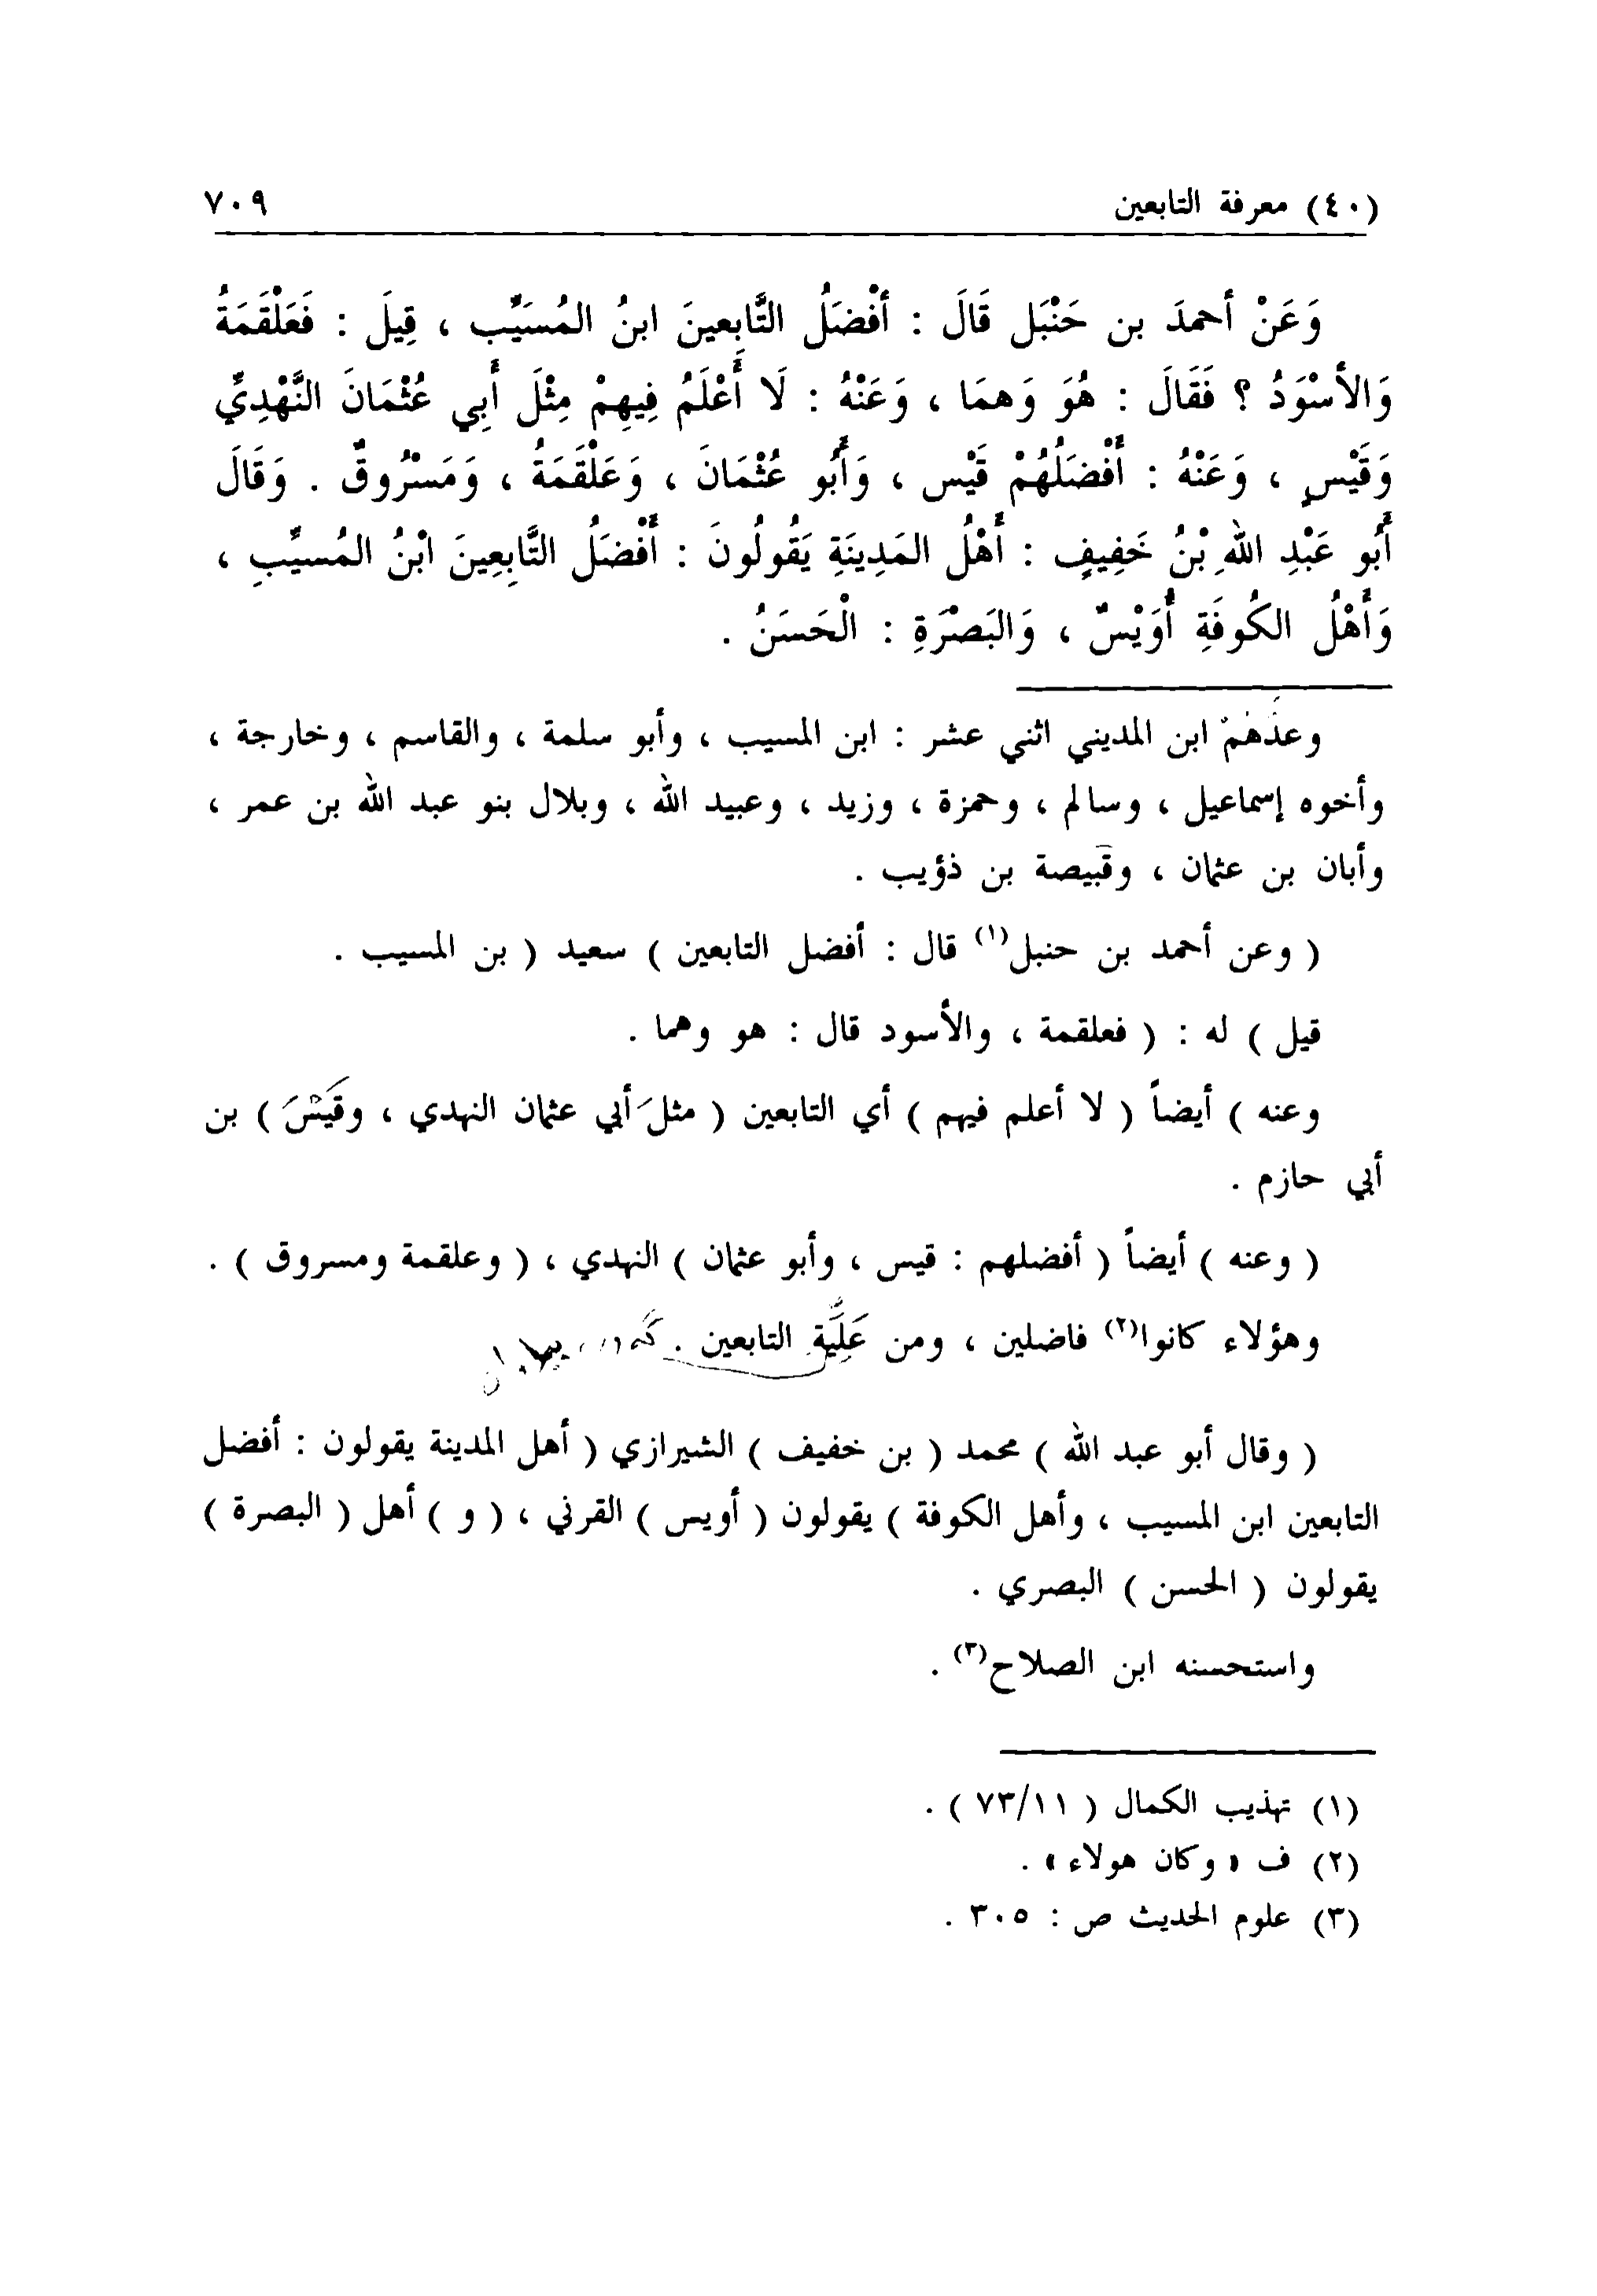 (٤٠) معرفة التابعين ٧٠٩
وَعَنْ أحمدَ بن حَنْبَل قَالَ : أفْضَلُ التَّابِعينَ ابنُ المُسَيِّب ، قِيلَ : فَعَلْقَمَةُ
وَالأسْوَدُ ؟ فَقَالَ : هُوَ وَهمَا ، وَعَنْهُ : لَا أَعْلَمُ فِيهِمْ مِثْلَ أَبِي عُثْمَانَ النَّهْدِيِّ
وَقَيْسٍ ، وَعَنْهُ : أَفْضَلُهُمْ قَيْس ، وَأَبُو عُثْمَانَ ، وَعَلْقَمَةُ ، وَمَسْرُوقٌ . وَقَالَ
أَبُو عَبْدِ اللهِ بْنُ خَفِيفٍ : أَهْلُ المَدِينَةِ يَقُولُونَ : أَفْضَلُ التَّابِعِينَ ابْنُ المُسيِّبِ ،
وَأَهْلُ الكُوفَةِ أُوَيْسٌ ، وَالبَصْرَةِ : الْحَسَنُ .
وعدَهُمْ ابن المديني اثني عشر : ابن المسيب ، وأبو سلمة ، والقاسم ، وخارجة ،
وأخوه إسماعيل ، وسالم ، وحمزة ، وزيد ، وعبيد الله ، وبلال بنو عبد الله بن عمر ،
وأبان بن عثمان ، وقبيصة بن ذؤيب .
( وعن أحمد بن حنبل(١) قال : أفضل التابعين ) سعيد ( بن المسيب .
قيل ) له : ( فعلقمة ، والأسود قال : هو وهما .
وعنه ) أيضاً ( لا أعلم فيهم ) أي التابعين ( مثلَ أبي عثمان النهدي ، وقيْسَ ) بن
أبي حازم .
( وعنه ) أيضاً ( أفضلهم : قيس ، وأبو عثمان ) النهدي ، ( وعلقمة ومسروق ) .
وهؤلاء كانوا(٢) فاضلين ، ومن عَلِيَّة التابعين .
( وقال أبو عبد الله ) محمد ( بن خفيف ) الشيرازي ( أهل المدينة يقولون : أفضل
التابعين ابن المسيب ، وأهل الكوفة ) يقولون ( أويس ) القرني ، ( و ) أهل ( البصرة )
يقولون ( الحسن ) البصري .
واستحسنه ابن الصلاح(٣) .
(١) تهذيب الكمال ( ٧٣/١١ ) .
(٢) ف « وكان هولاء » .
(٣) علوم الحديث ص : ٣٠٥ .